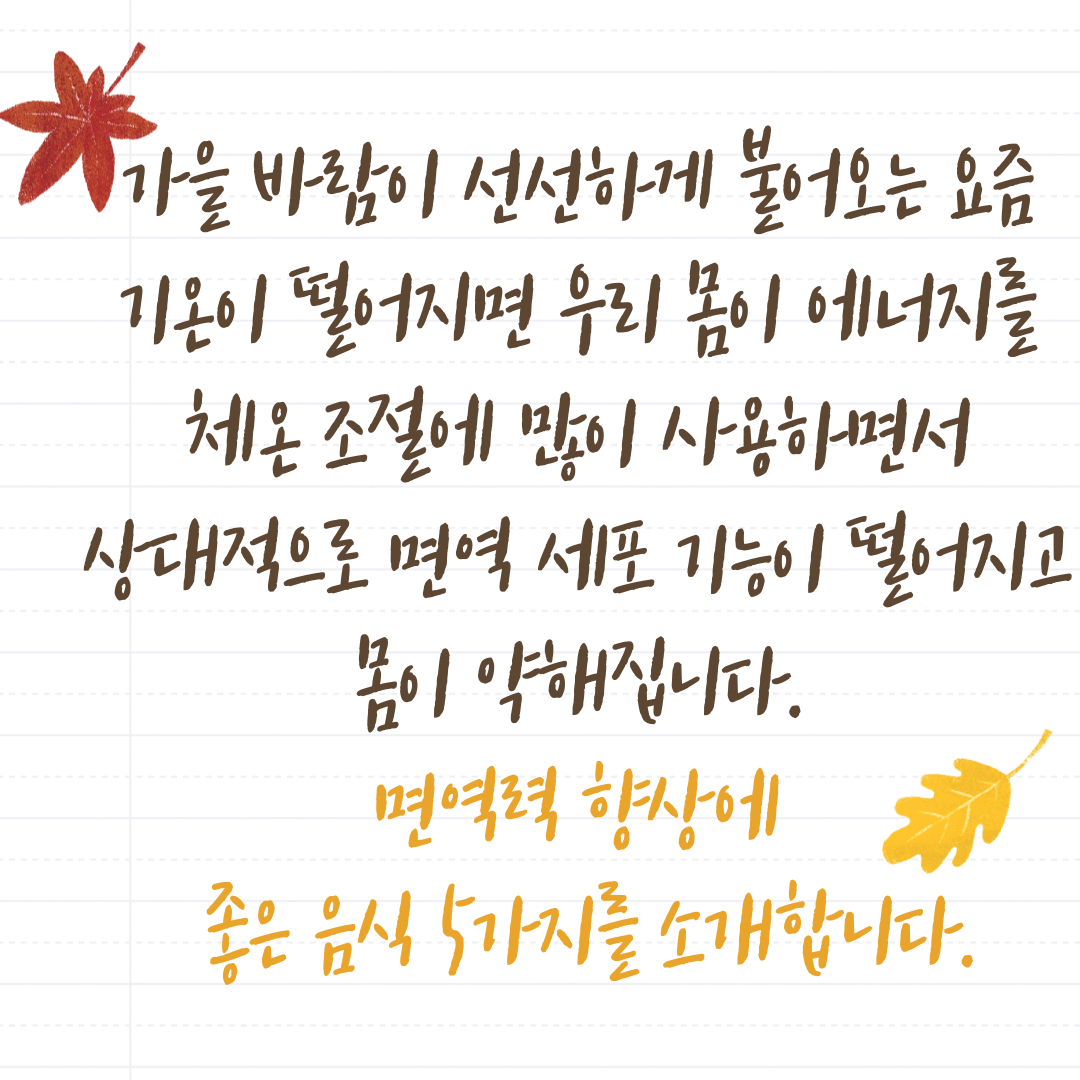 가을 바람이 선선하게 불어오는 요즘
기온이 떨어지면 우리 몸이 에너지를
체온 조절에 많이 사용하면서
상대적으로 면역 세포 기능이 떨어지고
몸이 약해집니다.
면역력 향상에
좋은 음식 5가지를 소개합니다.